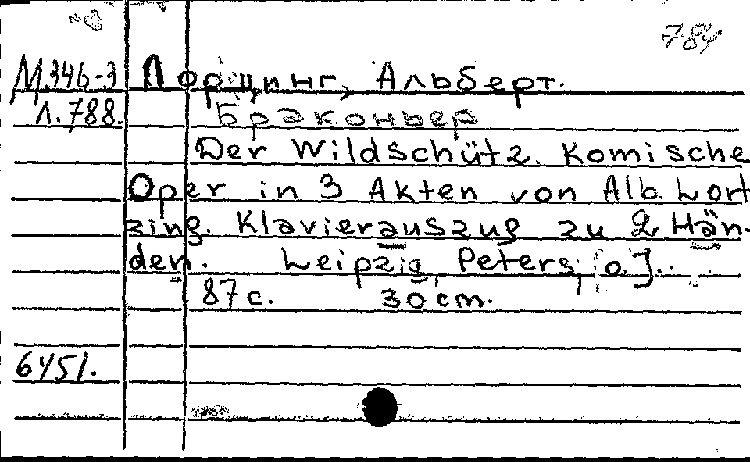 784
М.346-3 Лорцинг, Альберт.
Л.788. Браконьер
Der Wildschütz. Komische
Oper in 3 Akten von Alb. Lort
zing. Klavierauszug zu 2 Hän-
den. Leipzig, Peters, [o. J.].
87 с. 30 cm.
6451.